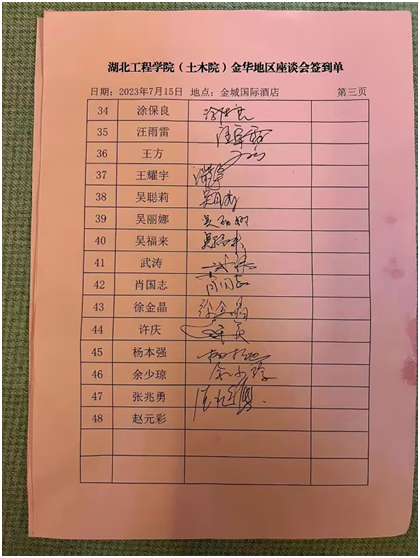 湖北工程学院（土木院）金华地区座谈会签到单
日期：2023年7月15日 地点：金城国际酒店 第三页
34 涂保良 涂保良
35 汪雨雷 汪雨雷
36 王方
37 王耀宇
38 吴聪莉
39 吴丽娜 吴丽娜
40 吴福来 吴福来
41 武涛 武涛
42 肖国志 肖国志
43 徐金晶 徐金晶
44 许庆
45 杨本强
46 余少琼 余少琼
47 张兆勇 张兆勇
48 赵元彩